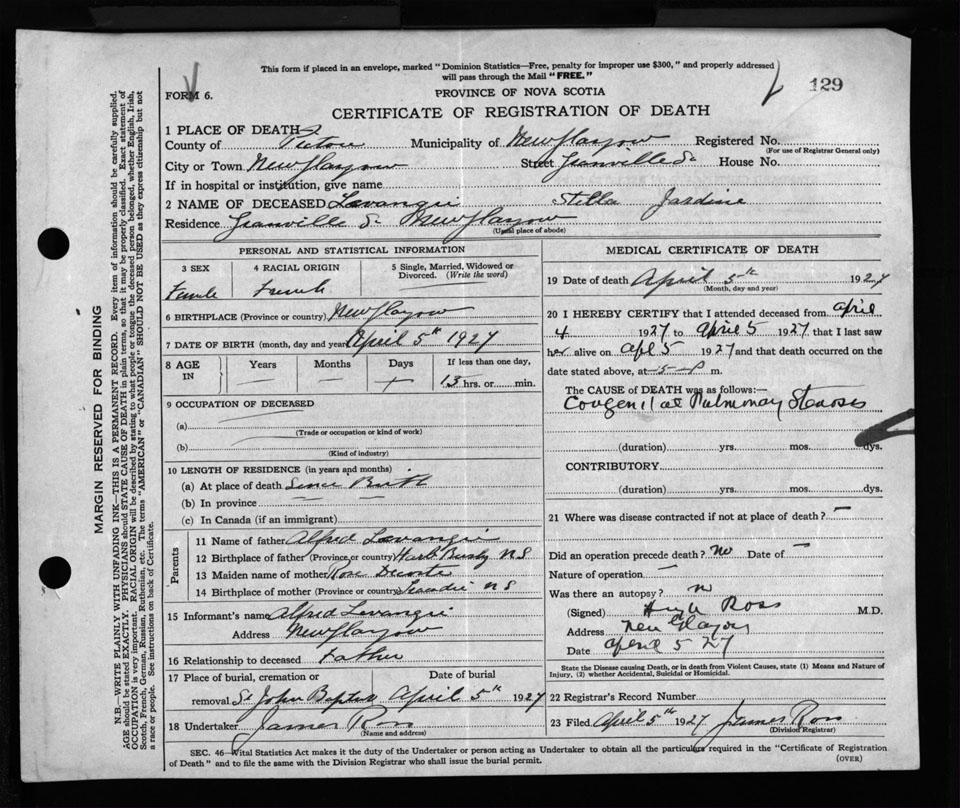 This form if placed in an envelope, marked "Dominion Statistics—Free, penalty for improper use $300," and properly addressed
will pass through the Mail "FREE."
129
FORM 6.
PROVINCE OF NOVA SCOTIA
CERTIFICATE OF REGISTRATION OF DEATH
1 PLACE OF DEATH
County of Pictou Municipality of New Glasgow Registered No.
(For use of Registrar General only)
City or Town New Glasgow Street Granville St House No.
If in hospital or institution, give name
2 NAME OF DECEASED Levangie Stella Jardine
Residence Granville St New Glasgow
(Usual place of abode)
PERSONAL AND STATISTICAL INFORMATION
3 SEX 4 RACIAL ORIGIN 5 Single, Married, Widowed or
Divorced. (Write the word)
Female French
6 BIRTHPLACE (Province or country) New Glasgow
7 DATE OF BIRTH (month, day and year) April 5th 1927
8 AGE
IN
Years Months Days If less than one day,
13 hrs. or min.
9 OCCUPATION OF DECEASED
(a)
(Trade or occupation or kind of work)
(b)
(Kind of industry)
10 LENGTH OF RESIDENCE (in years and months)
(a) At place of death Since Birth
(b) In province
(c) In Canada (if an immigrant)
Parents
11 Name of father Alfred Levangie
12 Birthplace of father (Province or country) Harb Bushy N S
13 Maiden name of mother Rose Decoste
14 Birthplace of mother (Province or country) Tracadie N S
15 Informant's name Alfred Levangie
Address New Glasgow
16 Relationship to deceased Father
17 Place of burial, cremation or Date of burial
removal St John Baptist April 5th 1927
18 Undertaker James Ross
(Name and address)
MEDICAL CERTIFICATE OF DEATH
19 Date of death April 5th 1927
(Month, day and year)
20 I HEREBY CERTIFY that I attended deceased from April
4 1927 to April 5 1927 that I last saw
her alive on apl 5 1927 and that death occurred on the
date stated above, at 5 P m.
The CAUSE of DEATH was as follows:—
Congenital Pulmonary Stenosis
(duration) yrs. mos. dys.
CONTRIBUTORY
(duration) yrs. mos. dys.
21 Where was disease contracted if not at place of death? —
Did an operation precede death? No Date of —
Nature of operation —
Was there an autopsy? no
(Signed) Hugh Ross M.D.
Address New Glasgow
Date April 5 27
State the Disease causing Death, or in death from Violent Causes, state (1) Means and Nature of
Injury, (2) whether Accidental, Suicidal or Homicidal.
22 Registrar's Record Number
23 Filed April 5th 1927 James Ross
(Division Registrar)
SEC. 46—Vital Statistics Act makes it the duty of the Undertaker or person acting as Undertaker to obtain all the particulars required in the "Certificate of Registration
of Death" and to file the same with the Division Registrar who shall issue the burial permit.
(OVER)
MARGIN RESERVED FOR BINDING
N.B.—WRITE PLAINLY WITH UNFADING INK—THIS IS A PERMANENT RECORD. Every item of information should be carefully supplied.
AGE should be stated EXACTLY. PHYSICIANS should STATE CAUSE OF DEATH in plain terms, so that it may be properly classified. Exact statement of
OCCUPATION is very important. RACIAL ORIGIN will be described by stating to what people or tongue the deceased person belonged, whether English, Irish,
Scotch, French, German, Russian, Ruthenian, etc. The terms "AMERICAN" or "CANADIAN" SHOULD NOT BE USED as they express citizenship but not
a race or people. See instructions on back of Certificate.